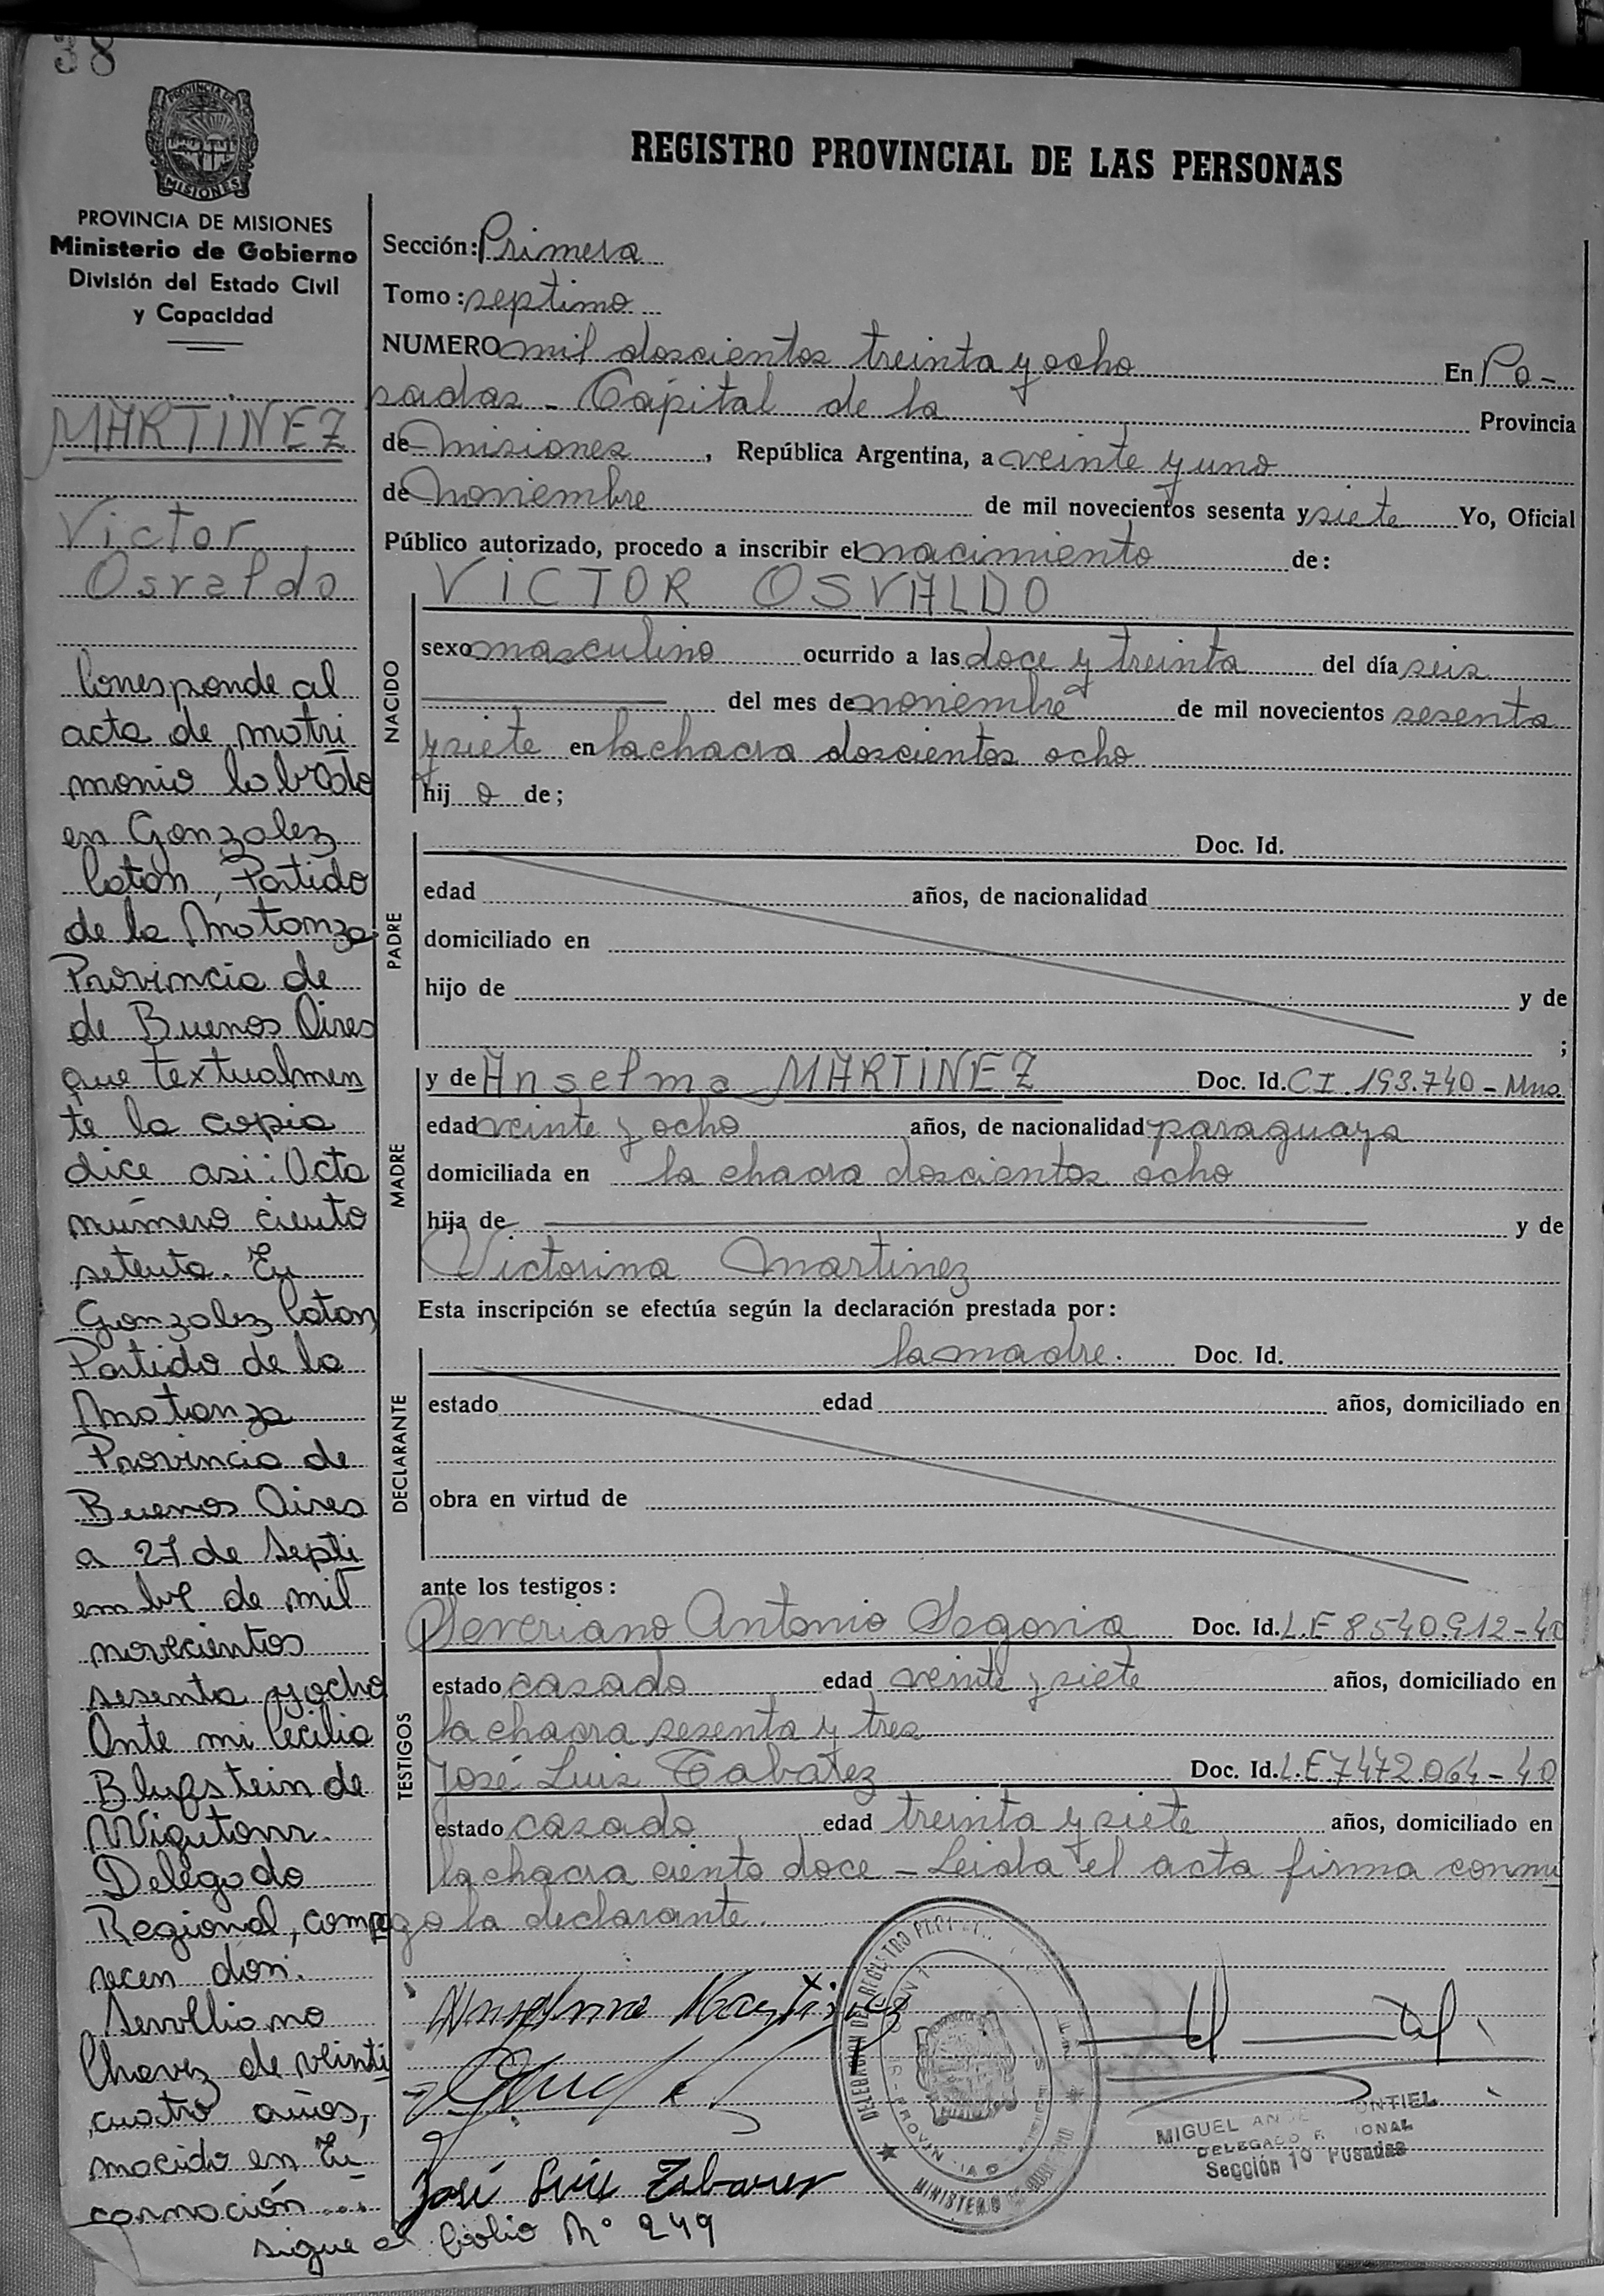 38
PROVINCIA DE
MISIONES
PROVINCIA DE MISIONES
Ministerio de Gobierno
División del Estado Civil
y Capacidad
MARTINEZ
Victor
Osvaldo
Corresponde al
acta de matri
monio labrada
en Gonzalez
Catan, Partido
de la Matanza
Provincia de
de Buenos Aires
que textualmen
te la copia
dice asi: Acta
número ciento
setenta. En
Gonzalez Catan
Partido de la
Matanza
Provincia de
Buenos Aires
a 27 de Septi
embre de mil
novecientos
sesenta y ocho
Ante mi Cecilia
de
Delegado
Regional, compa
recen don:
Servilliano
Chavez de veinti
cuatro años,
nacido en En
carnación ...
sigue al folio Nº 249
REGISTRO PROVINCIAL DE LAS PERSONAS
Sección: Primera
Tomo: septimo
NUMERO mil doscientos treinta y ocho En Po-
sadas - Capital de la Provincia
de misiones, República Argentina, a veinte y uno
de noviembre de mil novecientos sesenta y siete Yo, Oficial
Público autorizado, procedo a inscribir el nacimiento de:
VICTOR OSVALDO
NACIDO
sexo masculino ocurrido a las doce y treinta del día seis
del mes de noviembre de mil novecientos sesenta
y siete en la chacra doscientos ocho
hij o de;
PADRE
Doc. Id.
edad años, de nacionalidad
domiciliado en
hijo de y de
;
MADRE
y de Anselma MARTINEZ Doc. Id. C.I. 193.740 - Mnes
edad veinte y ocho años, de nacionalidad paraguaya
domiciliada en la chacra doscientos ocho
hija de y de
Victorina Martinez
Esta inscripción se efectúa según la declaración prestada por:
DECLARANTE
la madre. Doc. Id.
estado edad años, domiciliado en
obra en virtud de
ante los testigos:
TESTIGOS
Severiano Antonio Segovia Doc. Id. L.E 8540.912-40
estado casado edad veinte y siete años, domiciliado en
la chacra sesenta y tres
José Luis Tabarez Doc. Id. L.E 7.472.064-40
estado casado edad treinta y siete años, domiciliado en
la chacra ciento doce - Leida el acta firma conmi
go la declarante.
Anselma Martinez
José Luis Tabarez
MIGUEL ONTIEL
DELEGADO IONAL
Sección 1º Posadas